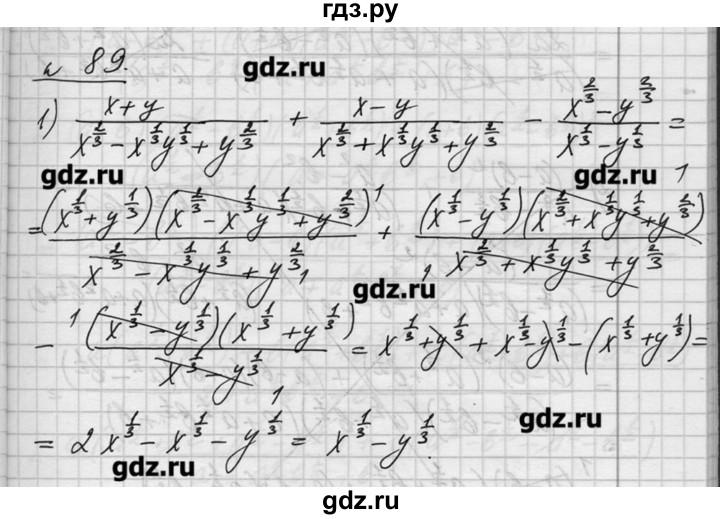 гдз.ру
N 89.
gdz.ru
1) (x+y)/(x^(2/3) - x^(1/3)y^(1/3) + y^(2/3)) + (x-y)/(x^(2/3) + x^(1/3)y^(1/3) + y^(2/3)) - (x^(2/3) - y^(2/3))/(x^(1/3) - y^(1/3)) =
gdz.ru gdz.ru
= (x^(1/3) + y^(1/3))(x^(2/3) - x^(1/3)y^(1/3) + y^(2/3))^1/(x^(2/3) - x^(1/3)y^(1/3) + y^(2/3))_1 + (x^(1/3) - y^(1/3))(x^(2/3) + x^(1/3)y^(1/3) + y^(2/3))^1/(x^(2/3) + x^(1/3)y^(1/3) + y^(2/3))_1
gdz.ru
- ^1(x^(1/3) - y^(1/3))(x^(1/3) + y^(1/3))/(x^(1/3) - y^(1/3))_1 = x^(1/3) + y^(1/3) + x^(1/3) - y^(1/3) - (x^(1/3) + y^(1/3)) =
gdz.ru
= 2x^(1/3) - x^(1/3) - y^(1/3) = x^(1/3) - y^(1/3).
gdz.ru
gdz.ru